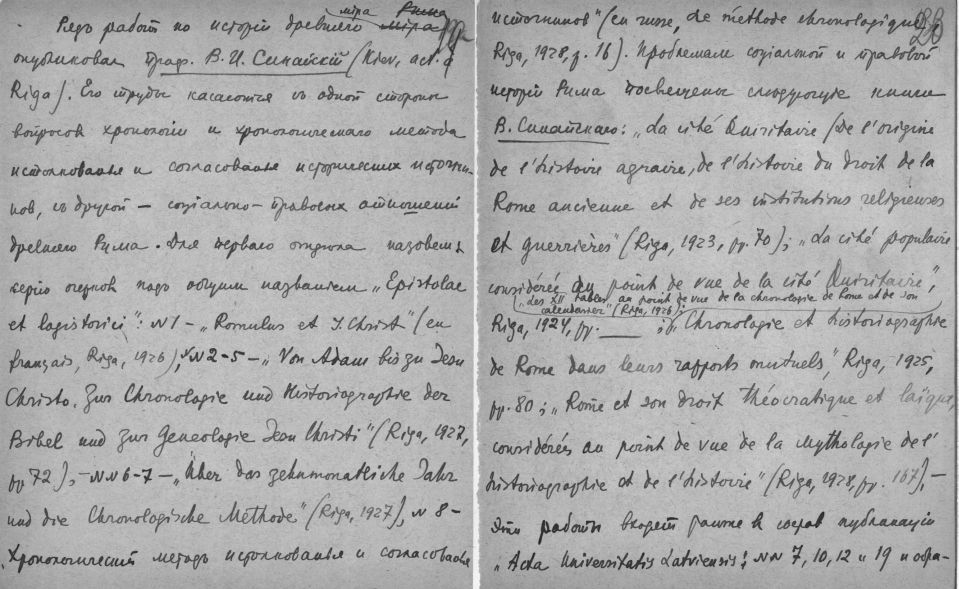 міра Рима
Рядъ работъ по исторіи древняго міра
опубликовалъ проф. В. И. Синайскій (Kiev, act. à
Riga). Его труды касаются съ одной стороны
вопросов хронологіи и хронологическаго метода
истолкованья и согласованья историческихъ источни-
ков, съ другой — соціально-правовыхъ отношеній
древняго Рима. Для перваго отдѣла назовемъ
серію очерков подъ общимъ названіемъ „Epistolae
et logistorici": №1 – „Romulus et J. Christ" (en
français, Riga, 1926), №№ 2-5 – „Von Adam bis zu Jesu
Christo. Zur Chronologie und Historiographie der
Bibel und zur Geneologie Jesu Christi" (Riga, 1927,
pp 72), – №№ 6-7 – „Über das zehnmonatliche Jahr
und die Chronologische Methode" (Riga, 1927), № 8 –
„Хронологический методъ истолкованья и согласованья
источников" (en russe, de méthode chronologique,
Riga, 1928, p. 16). Проблемам соціальной и правовой
исторіи Рима посвящены следующіе книги
В. Синайскаго: „La cité Quiritaire (De l'origine
de l'histoire agraire, de l'histoire du droit de la
Rome ancienne et de ses institutions religieuses
et guerrières" (Riga, 1923, pp. 70); „La cité populaire
considérée au point de vue de la cité Quiritaire",
„des XII tables" au point de vue de la chronologie de Rome et de son
calendarier" (Riga, 1926);
Riga, 1924, pp. ; „Chronologie et historiographie
de Rome dans leurs rapports mutuels", Riga, 1925,
pp. 80; „Rome et son droit théocratique et laïque,
considérés au point de vue de la mythologie de l'
historiographie et de l'histoire" (Riga, 1928, pp. 167), –
Эти работы входят в публикаціи
„Acta Universitatis Latviensis", №№ 7, 10, 12 и 19 и